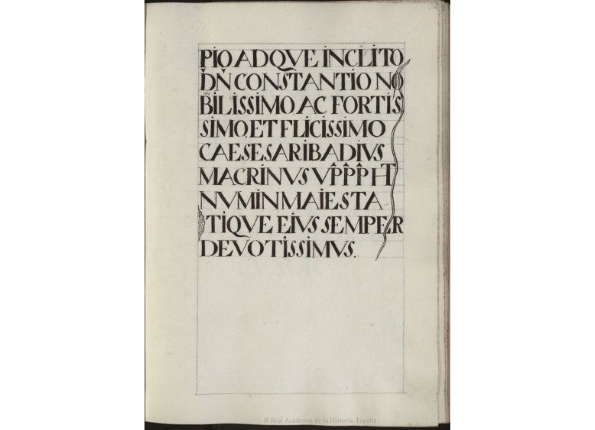 PIO ADQVE INCLITO
D̄N̄ CONSTANTIO NO
BILISSIMO AC FORTIS
SIMO ET FLICISSIMO
CAESESARI BADIVS
MACRINVS VP̂P̂P̂P HT
NVMIN MAIESTA
TIQVE EIVS SEMPER
DEVOTISSIMVS.
© Real Academia de la Historia. España